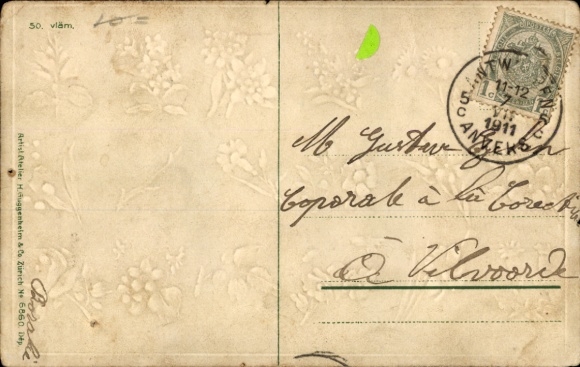 50. vläm.
10=
Artist. Atelier H. Guggenheim & Co. Zürich No 6860. Dép.
ANTWERPEN
11-12
5 7
VII
1911
ANVERS
M Gustave
Caporale à la Correct
à Vilvoorde